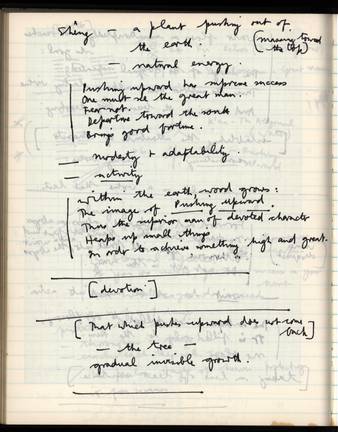 Shêng — a plant pushing out of
the earth. (moving toward
the top)
— natural energy.
Pushing upward has supreme success
One must see the great man.
Fear not.
Departure toward the south
Brings good fortune.
— modesty + adaptability.
— activity
Within the earth, wood grows:
The image of Pushing upward.
Thus the superior man of devoted character
Heaps up small things
In order to achieve something high and great.
[devotion]
[That which pushes upward does not come
back]
— the tree —
gradual invisible growth.